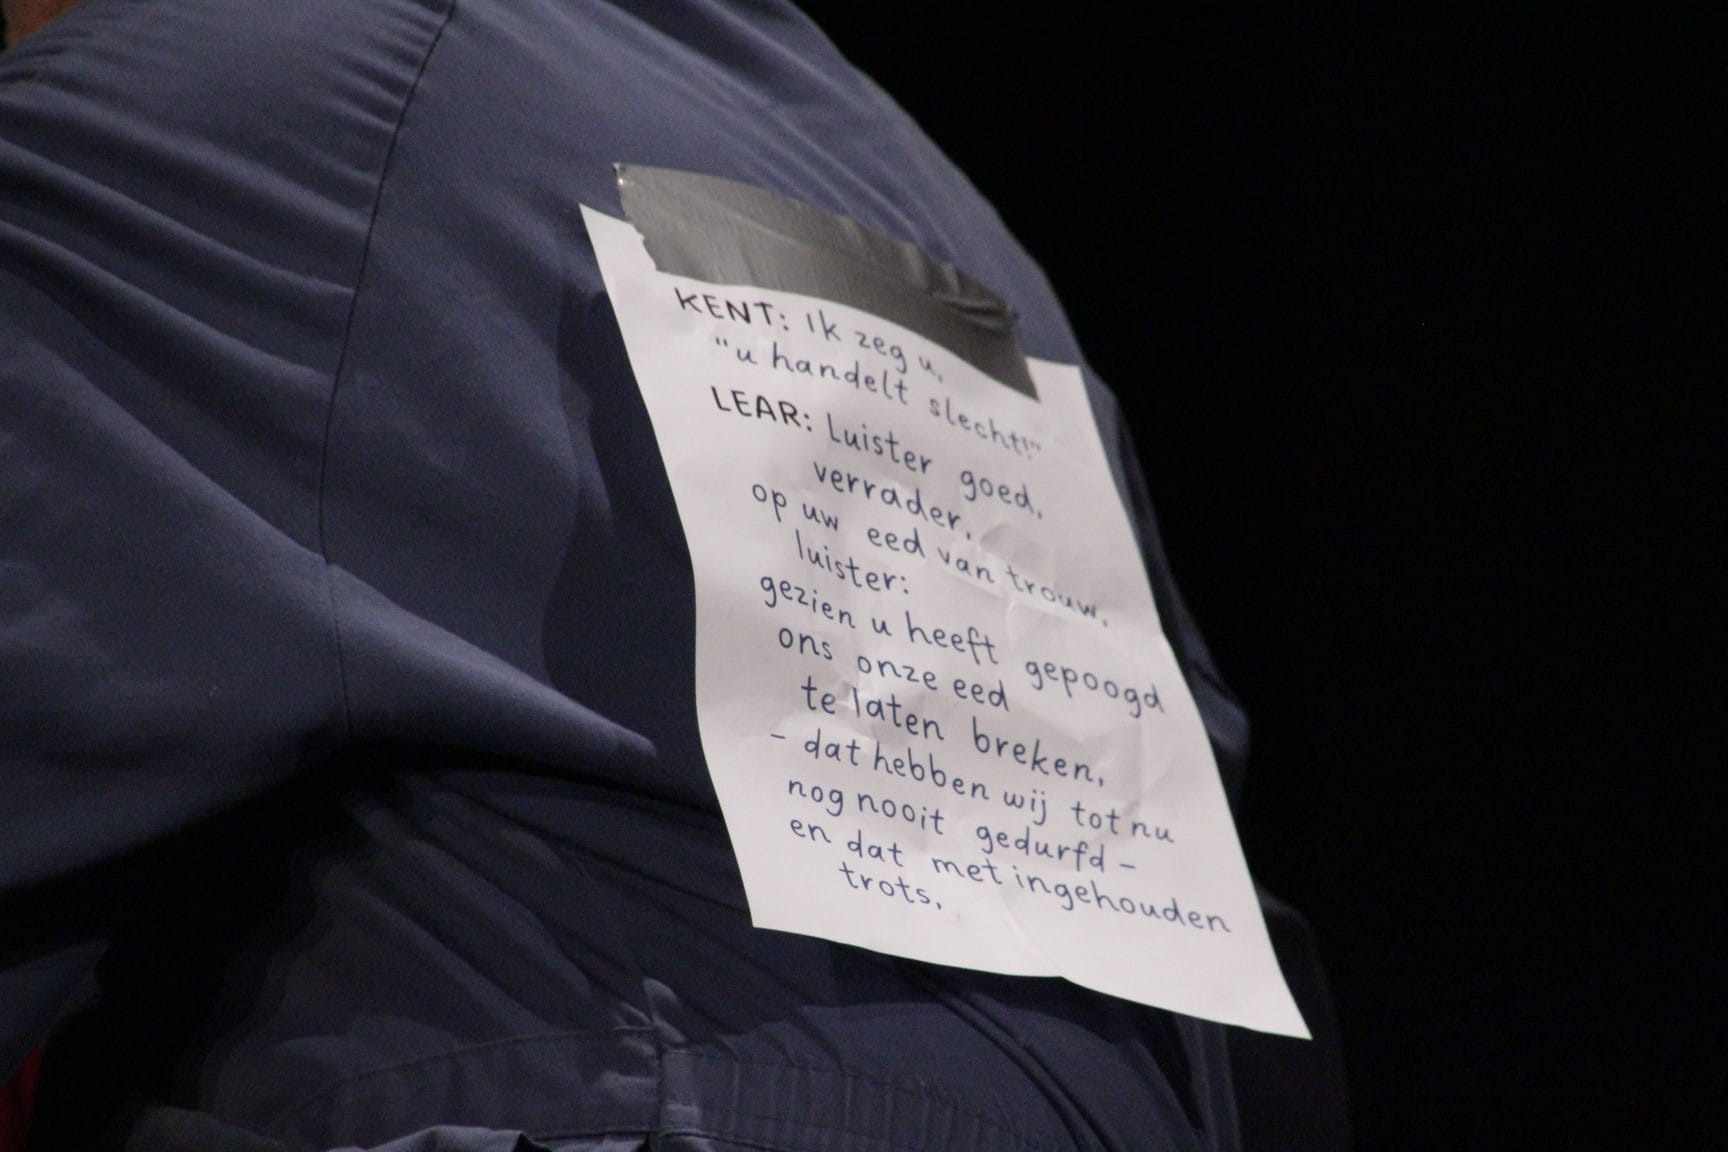 KENT: Ik zeg u,
"u handelt slecht!"
LEAR: Luister goed,
verrader,
op uw eed van trouw,
luister:
gezien u heeft gepoogd
ons onze eed
te laten breken,
- dat hebben wij tot nu
nog nooit gedurfd -
en dat met ingehouden
trots,